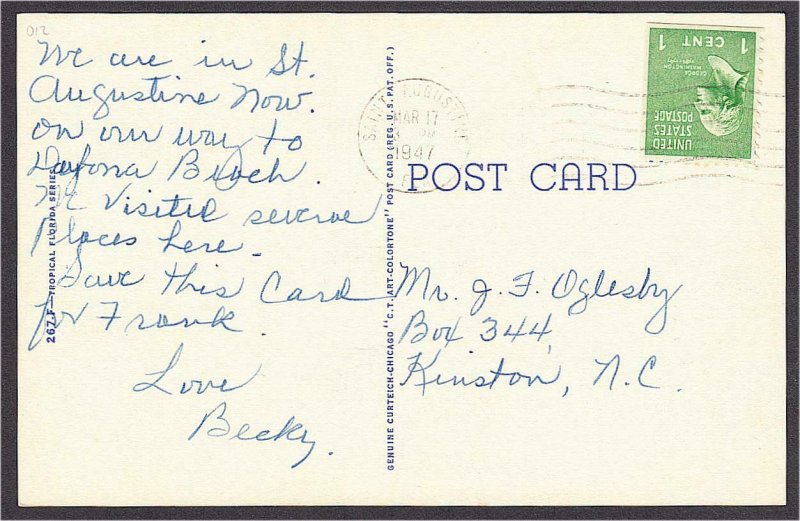 012
We are in St.
Augustine Now.
on our way to
Daytona Beach.
We Visited severve
Places here.
Save this Card
for Frank.
Love
Becky.
267-F—TROPICAL FLORIDA SERIES
GENUINE CURTEICH-CHICAGO "C.T. ART-COLORTONE" POST CARD (REG. U.S. PAT. OFF.)
SAINT AUGUSTINE
MAR 17
PM
1947
1 CENT 1
GEORGE
WASHINGTON
UNITED
STATES
POSTAGE
POST CARD
Mr. J. F. Oglesby
Box 344,
Kinston, N.C.